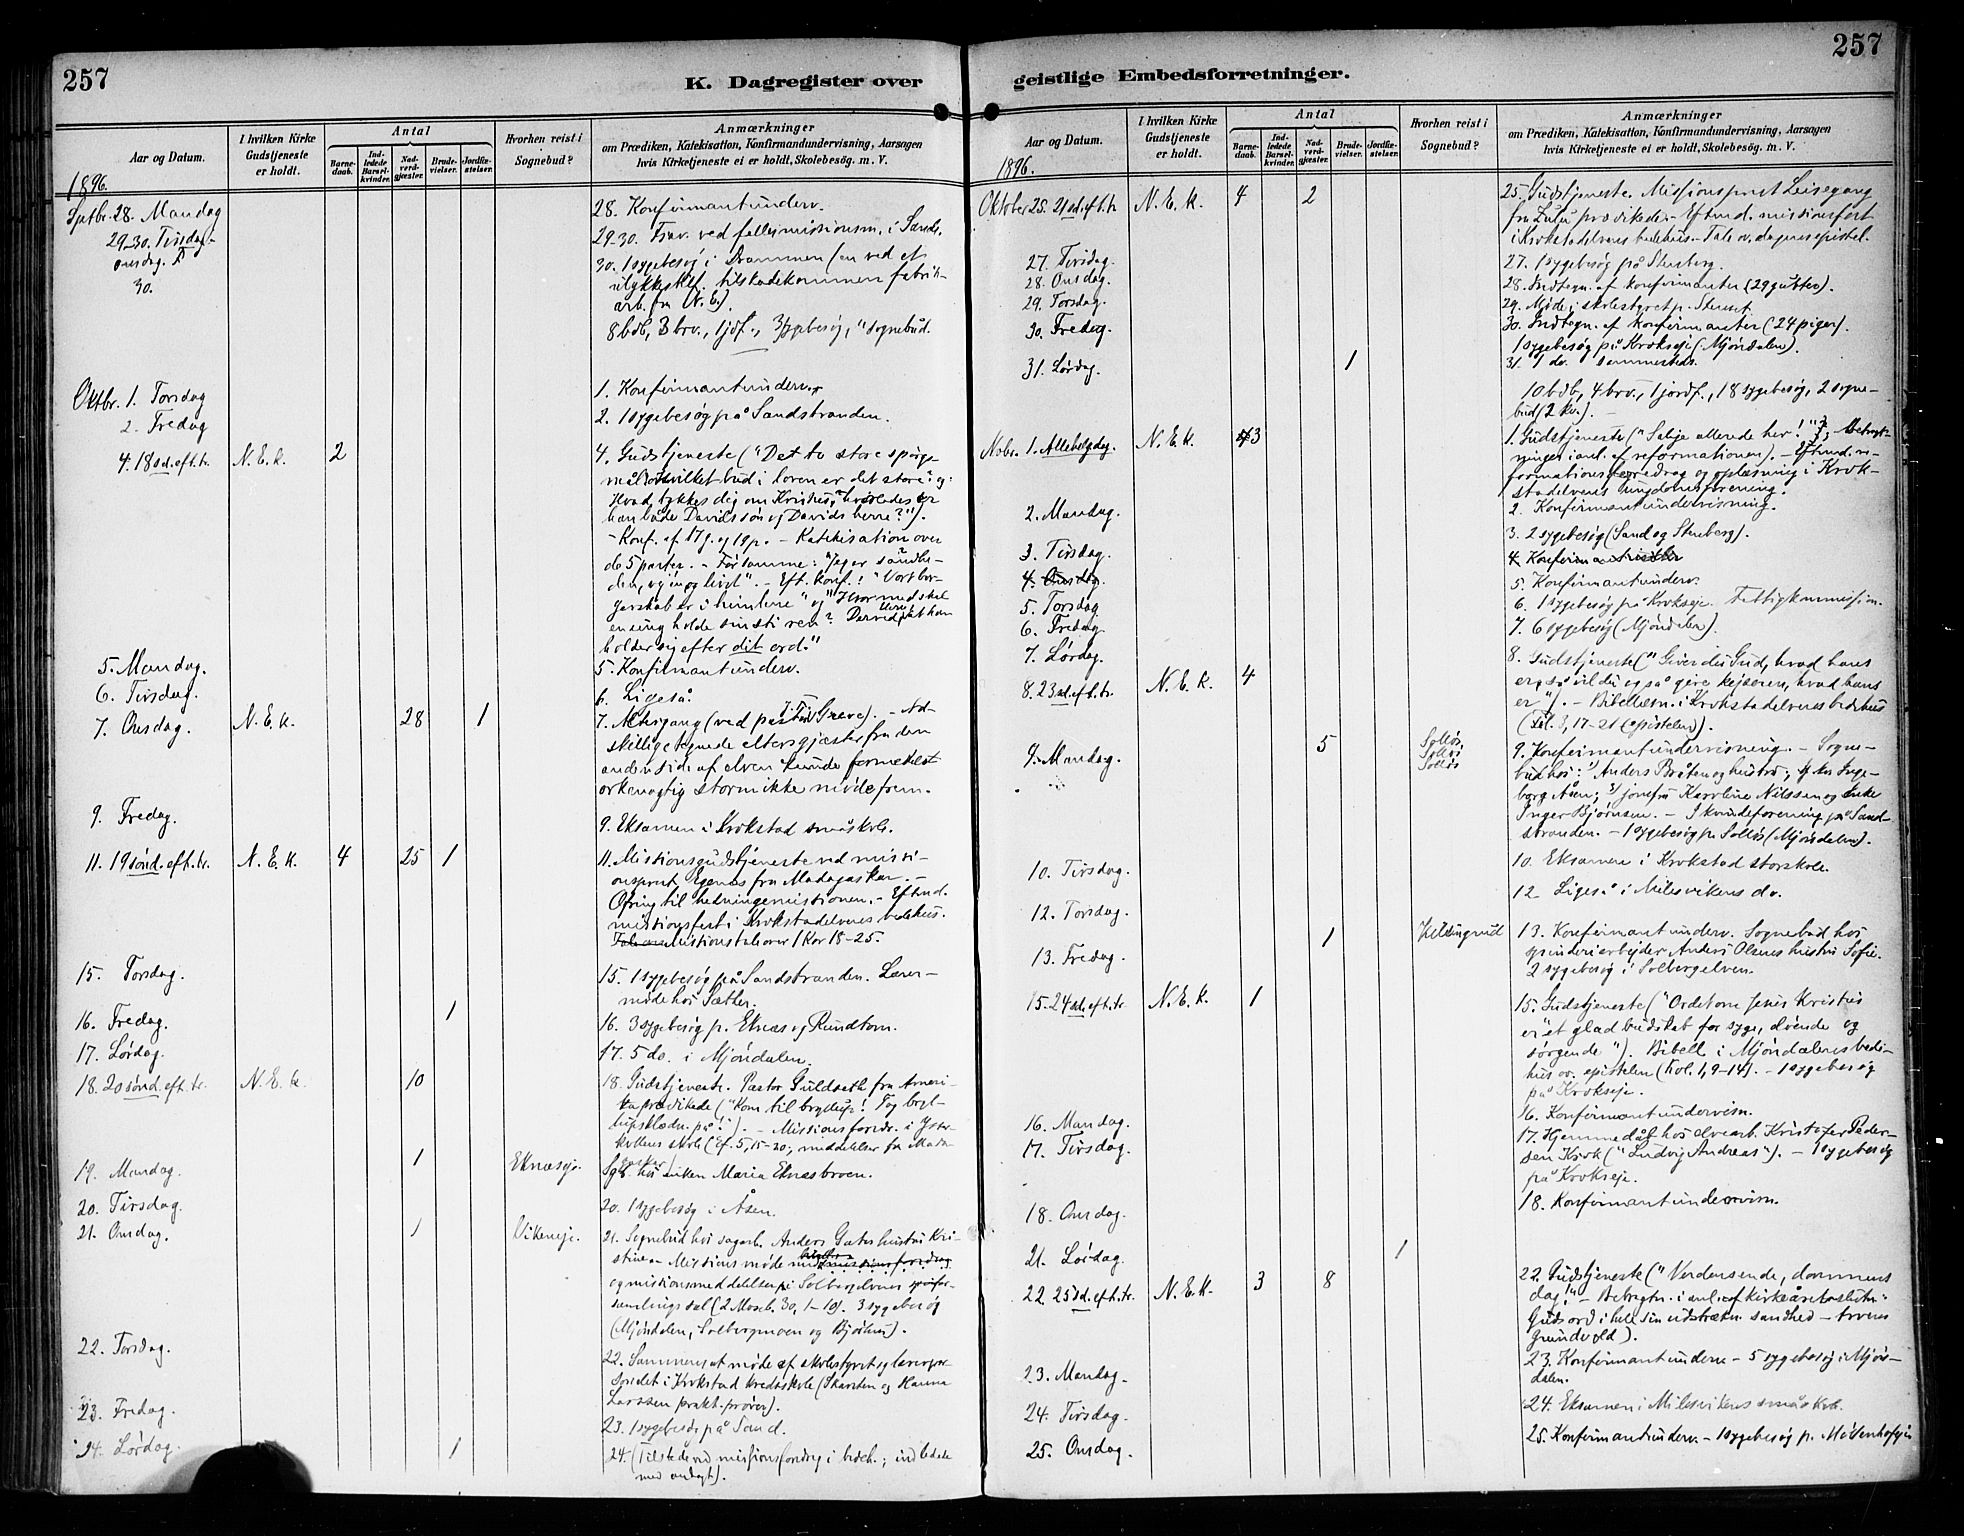 257
K. Dagregister over
Aar og Datum.
I hvilken Kirke Gudstjeneste er holdt.
Antal
Barnedaab.
Indledede Barselkvinder.
Nadverdgjæster.
Brudevielser.
Jordfæstelser.
Hvorhen reist i Sognebud?
Anmærkninger
om Prædiken, Katekisation, Konfirmandundervisning, Aarsagen
hvis Kirketjeneste ei er holdt, Skolebesög. m. V.
1896.
Sptbr. 28. Mandag
28. Konfirmantunderv.
29-30. Tirsdag-
onsdag.
29-30. Frav. ved fellesmissionsm. i Sande.
30.
30. 1 sygebesøg i Drammen (en ved et
ulykkestilf. tilskadekommen fabrik-
arb. fra N. E.)
8 bdb, 3 brv., 1 jdf., 3 sygebesøg, " sognebud.
Oktbr. 1. Torsdag
1. Konfirmantunderv.
2. Fredag
2. 1 sygebesøg på Sandstranden.
4. 18 sd. eft. tr. N. E. k. 2
4. Gudstjeneste ("De to store spørgs-
mål: Hvilket bud i loven er det store? og:
Hvad tykkes dig om Kristus, hvorledes er
han både Davids søn og Davids herre?").
- Konf. af 17 g. og 19 p. - Katekisation over
de 5 parter. - Før samme: "Jeg er sandhe-
den, vejen og livet". - Eft. konf.: "Vort bor-
gerskab er i himlene" og "Hvormed skal
en ung holde sin sti ren? Derved at han
holder sig efter dit ord."
5. Mandag.
5. Konfirmantunderv.
6. Tirsdag.
6. Ligeså.
7. Onsdag. N. E. k. 28 1
7. Altergang (ved pastor Greve). - Ad-
skillige tegnede altergjæster fra den
anden side af elven kunde formedelst
orkenagtig storm ikke møde frem.
9. Fredag.
9. Eksamen i Krokstad småskole.
11. 19 sönd. eft. tr. N. E. k. 4 25 1
11. Missionsgudstjeneste ved missi-
onsprest Egenæs fra Madagaskar. -
Ofring til hedningemissionen. - Eftmd.
missionsfest i Krokstadelvens bedehus.
Missionstale over 1 Kor 18-25.
15. Torsdag.
15. 1 sygebesøg på Sandstranden. Lærer-
møde hos Sæther.
16. Fredag. 1
16. 3 sygebesøg p. Eknæs og Rundtom.
17. Lördag.
17. 5 do. i Mjöndalen.
18. 20 sönd. eft. tr. N. E. k. 10
18. Gudstjeneste. Pastor Guldseth fra Ameri-
ka prædikede ("Kom til bryllup! Tag bryl-
lupsklædn. på!"). - Missionsforedr. i
skole (Ef. 5, 15-20; meddelelser fra Mada-
gaskar)
19. Mandag. 1 Eknæseje.
Sgb. hos enken Maria Eknæsbroen.
20. Tirsdag.
20. 1 sygebesøg i Åsen.
21. Onsdag. 1 Vikeneje.
21. Sognebud hos sagarb. Anders Gates hustru Kri-
stine. - Missionsmøde med missionsforedrag
og missionsmeddelelser i Solbergelvens
samlingssal (2 Moseb. 30, 1-10). 3 sygebesøg
(Mjöndalen, Solbergmoen og Bjørhus).
22. Torsdag.
22. Sammensat møde af skolestyret og lærerper-
sonalet i Krokstad kredsskole (Skarsten og Hanna
Larssen prakt. prøver).
23. Fredag.
23. 1 sygebesög på Sand.
24. Lørdag. 1
24. (Tilstede ved missionsforedrag i bedeh.; indledede
med andagt).
257
geistlige Embedsforretninger.
Aar og Datum.
I hvilken Kirke Gudstjeneste er holdt.
Antal
Barnedaab.
Indledede Barselkvinder.
Nadverdgjæster.
Brudevielser.
Jordfæstelser.
Hvorhen reist i Sognebud?
Anmærkninger
om Prædiken, Katekisation, Konfirmandundervisning, Aarsagen
hvis Kirketjeneste ei er holdt, Skolebesög. m. V.
1896.
Oktober 25. 21 sd. eft. tr. N. E. k. 4 2
25. Gudstjeneste. Missionsprest Leisegang
fra Zulu prædikede. - Eftmd. missionsfest
i Krokstadelvens bedehus. - Tale ov. dagens epistel.
27. Tirsdag.
27. 1 sygebesøg på Stenberg.
28. Onsdag.
28. Indtegn. af konfirmanter (29 gutter).
29. Torsdag.
29. Møde i skolestyret p. Stenset.
30. Fredag.
30. Indtegn. af konfirmanter (24 piger).
1 sygebesøg på Krokseje (Mjöndalen).
31. Lørdag. 1
31. 1 do. sammesteds.
10 bdb, 4 brv., 1 jordf., 18 sygebesøg, 2 sogne-
bud (2 kv.).
Novbr. 1. Allehelgdag. N. E. k. 3
1. Gudstjeneste ("Salige allerede her!"; - betragt-
ninger i anl. af reformationen). - Eftmd. re-
formationsforedrag og oplæsning i Krok-
stadelvens ungdomsforening.
2. Mandag.
2. Konfirmantundervisning.
3. Tirsdag.
3. 2 sygebesøg (Sand og Stenberg).
4. Onsdag.
4. Konfirmant
5. Torsdag
5. Konfirmantunderv.
6. Fredag
6. 1 sygebesøg på Krokseje. Fattigkommission.
7. Lørdag.
7. 6 sygebesøg (Mjöndalen).
8. 23 sd. eft. tr. N. E. k. 4
8. Gudstjeneste ("Giver du Gud, hvad hans
er, så vil du også give kejseren, hvad hans
er"). - Bibellæsn. i Krokstadelvens bedehus
(Fil. 3, 17-21 (epistelen)).
9. Mandag. 5 Solløs, Solløs, Solløs
9. Konfirmantundervisning. - Sogne-
bud hos: 1) Anders Bråten og hustru; 2) kv. Inge-
borg Åsen; 3) jomfru Karoline Nilssen og enke
Inger Bjørnsen. - I kvindeforening på Sand-
stranden. - 1 sygebesøg p. Solløs (Mjöndalen).
10. Tirsdag.
10. Eksamen i Krokstad storskole.
12. Torsdag.
12. Ligeså i Milesvikens do.
13. Fredag. 1 Killingrud
13. Konfirmantunderv. Sognebud hos
spinderiarbejder Anders Olsens hustru Sofie.
2 sygebesøg i Solbergelven.
15. 24 sd. eft. tr. N. E. k. 1
15. Gudstjeneste ("Ordet om Jesus Kristus
er et glad budskab for syge, døende og
sørgende"). Bibell. i Mjöndalens bede-
hus ov. epistelen (Kol. 1, 9-14). - 1 sygebesøg
på Krokseje.
16. Mandag.
16. Konfirmantundervisn.
17. Tirsdag.
17. Hjemmedåb hos elvearb. Kristofer Peder-
sen Krok ("Ludvig Andreas"). - 1 sygebesøg
på Krokseje.
18. Onsdag.
18. Konfirmantundervisn.
21. Lørdag. 1
22. 25 sd. eft. tr. N. E. k. 3 8
22. Gudstjeneste ("Verdens ende, dommens
dag!" - Betragtn. i anl. af kirkeårets slutn.:
Guds ord i hele sin udstrækn. sandhed - troens
grundvold).
23. Mandag.
23. Konfirmantunderv. - 5 sygebesøg i Mjön-
dalen.
24. Tirsdag.
24. Eksamen i Milesvikens småskole.
25. Onsdag.
25. Konfirmantunderv. - 1 sygebesøg p.